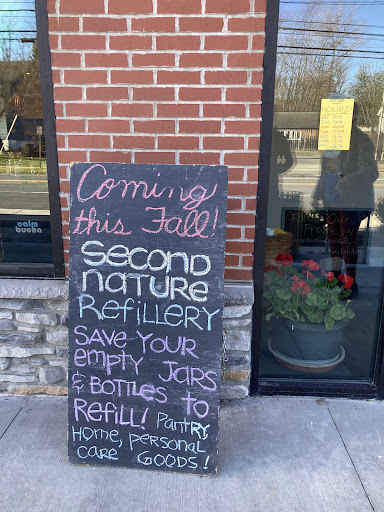 Coming
this Fall!
Second
nature
Refillery
Save Your
empty Jars
& Bottles to
Refill! Pantry
Home, personal
care Goods!
calm
bucha
HOURS